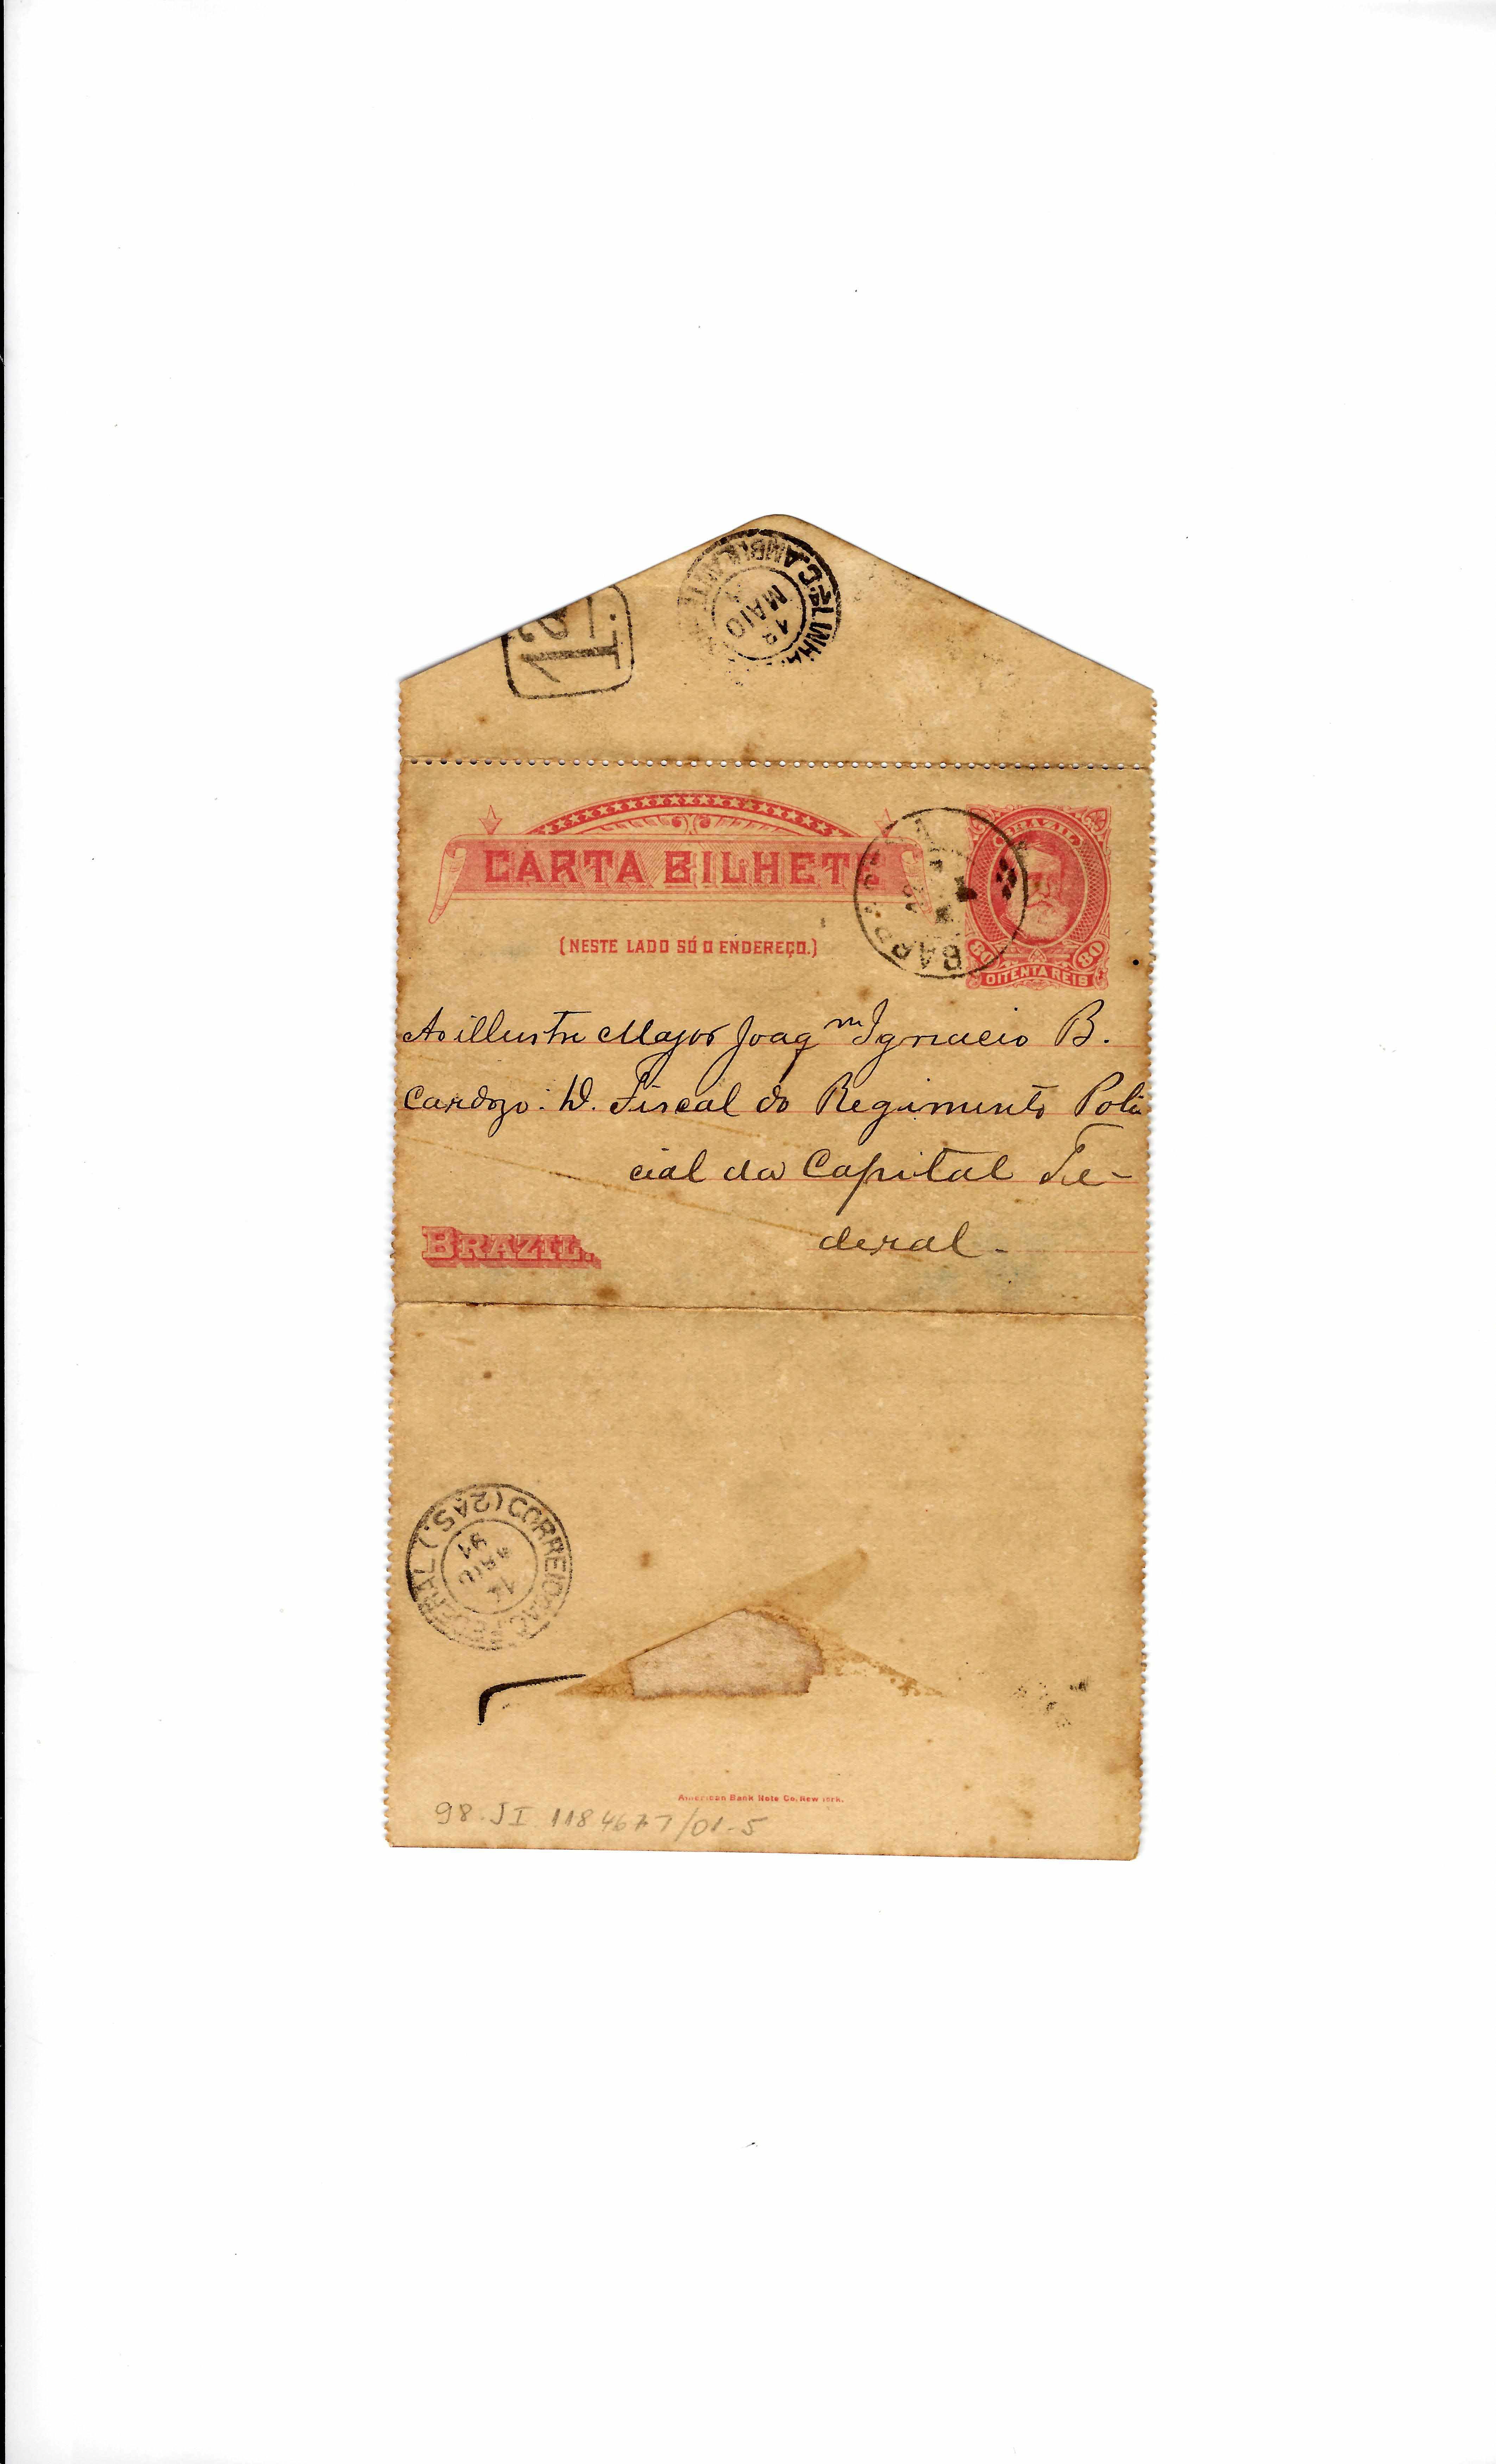 12
1ª LINHA C. AMBULANTE
13
MAIO
CARTA BILHETE
BRAZIL
80 80
OITENTA REIS
(NESTE LADO SÓ O ENDEREÇO.)
Ao illustre Major Joaqm Ignacio B.
Cardozo. D. Fiscal do Regimento Poli
cial da Capital Fe-
deral -
BRAZIL.
CORREIO C. FEDERAL (2A S.)
14
MAIO
91
American Bank Note Co. New York.
98.JI 1184677/01-5